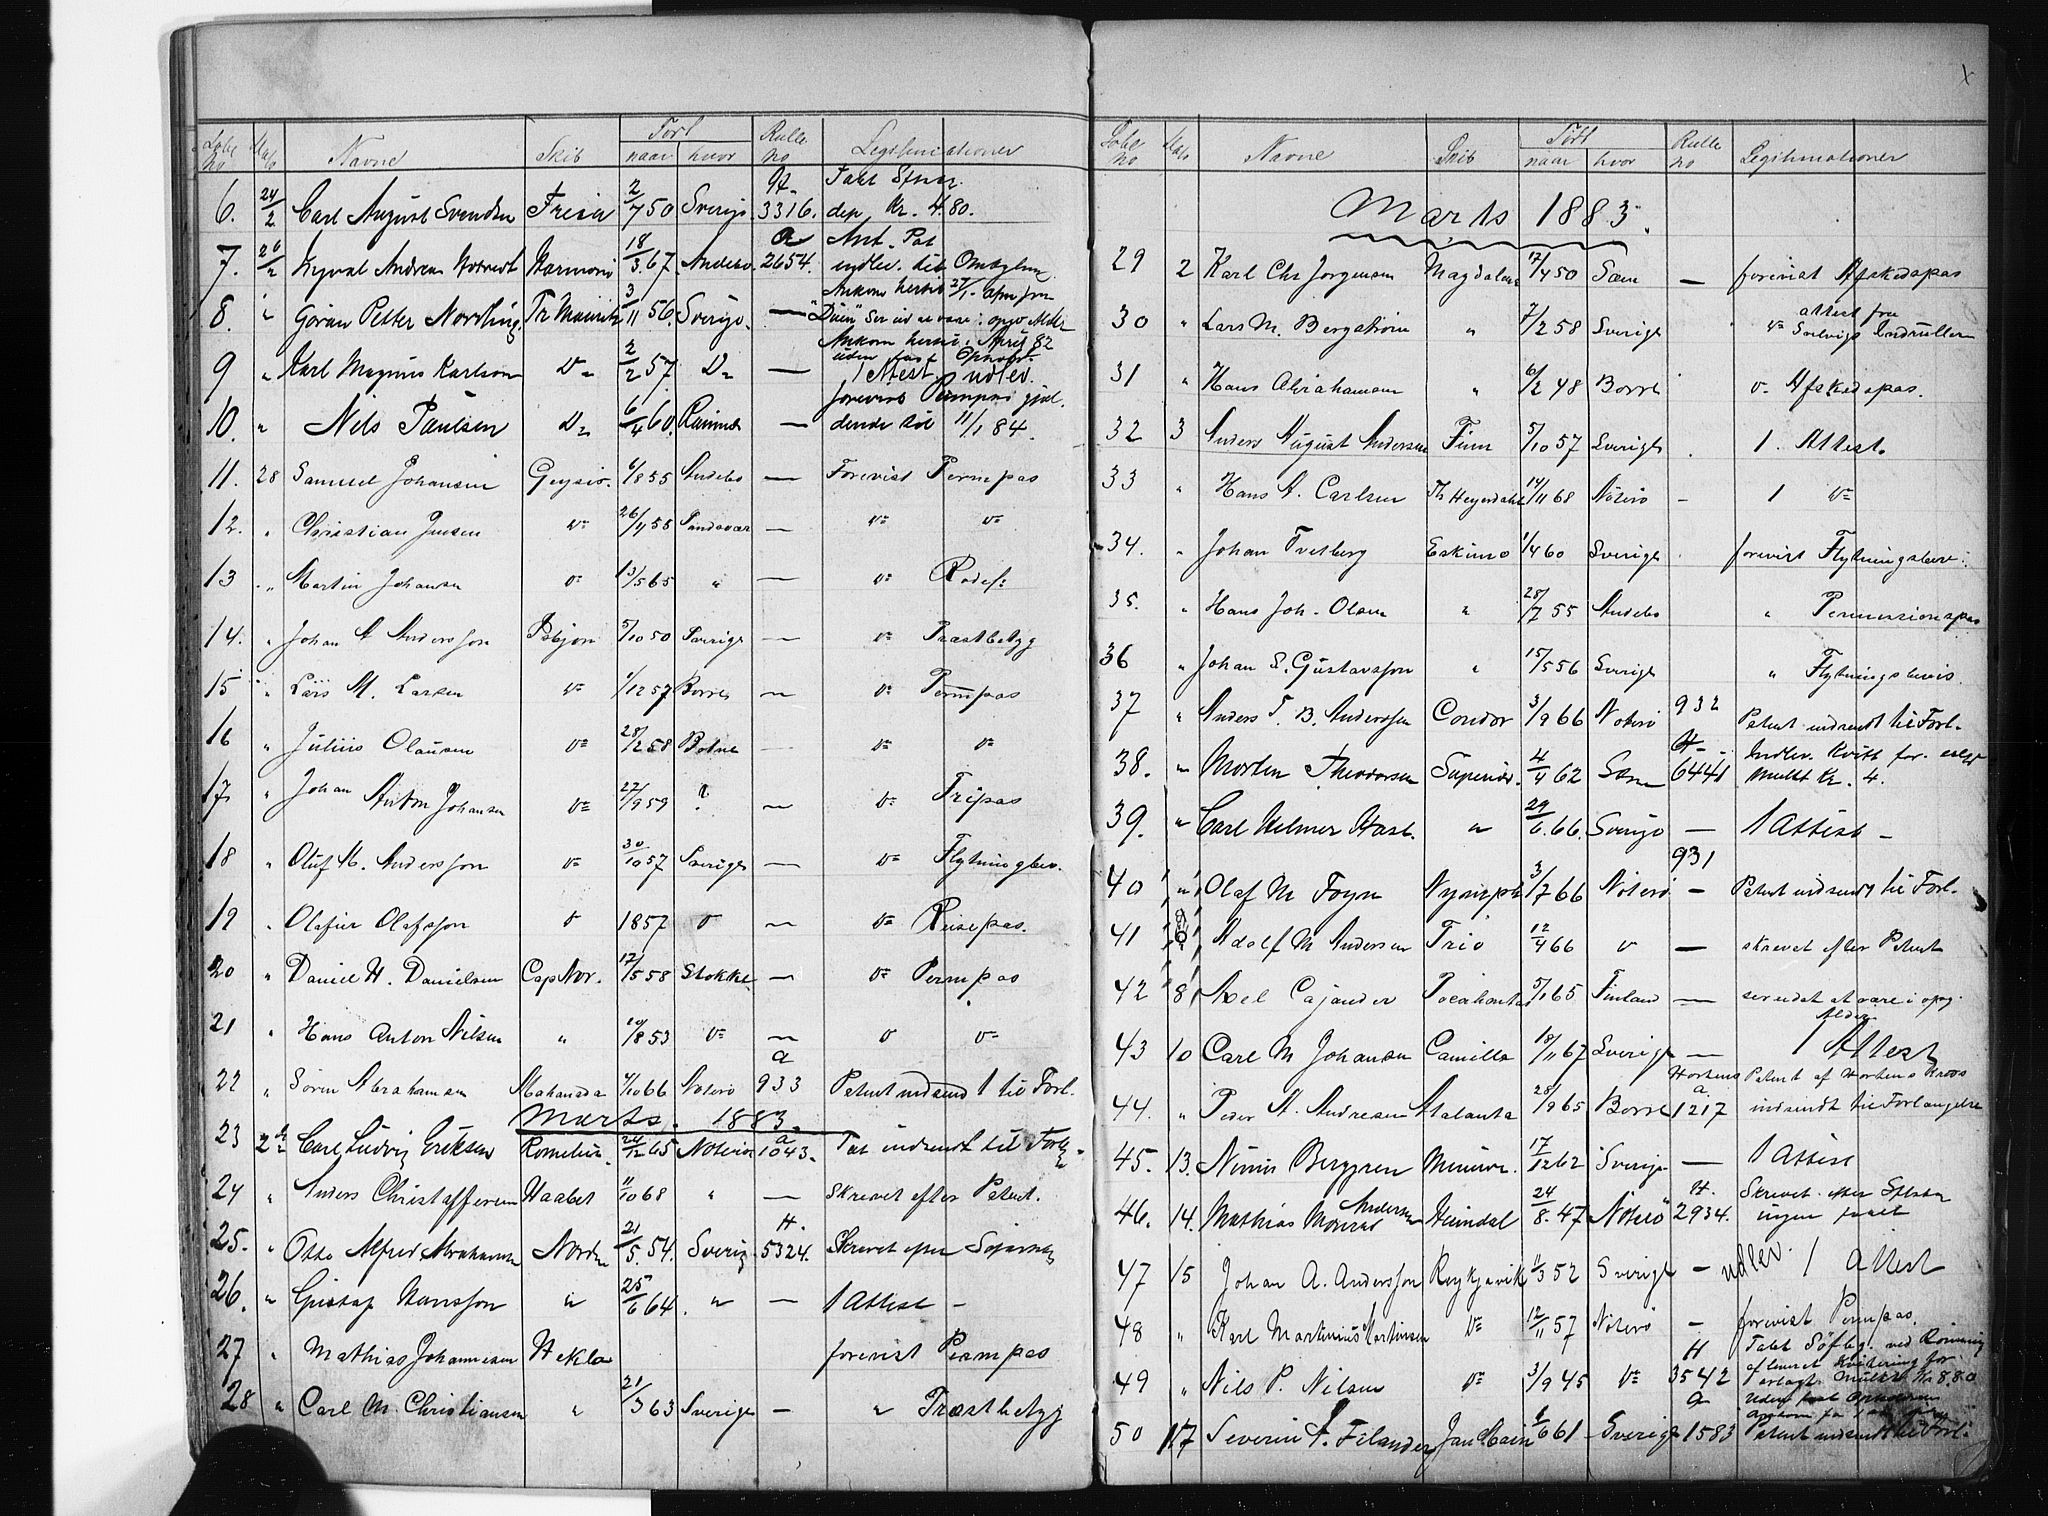 Løbe no Dato Navne Skib Født naar hvor Rulle no Legitimationer
6. 24/2 Carl August Svendsen Freia 2/7 50 Sverige H. 3316. Tabt Sfbog. dep Kr. 4.80.
7. 26/2 Andreas Harmoni 18/3 67 Andebo a 2654. Ant. Pat indlev. til Ombytn.
8. " Göran Petter Norrling Tr Mauritz 3/11 56. Sverige. —
9 " Karl Magnus Karlson Do 2/2 57 Do — Ankom hertil i April 82 uden fast Ophold. 1 Attest udlev.
10. " Nils Paulsen Do 6/4 60. Ramnes — forevist Permpas gjældende til 11/1 84.
11. 28 Samuel Johansen Geysir. 6/8 55 Andebo — Forevist Permpas
12. " Christian Jensen do 26/4 55 Sandsvær — do do
13 " Martin Johansen do 13/5 65 " — do Rodes:
14. " Johan A Anderson Isbjørn 5/10 50 Sverige — do Præstbetyg
15 " Lars M. Larsen do 1/12 57 Borre — do Permpas
16 " Julius Olausen do 28/12 58 Botne — do do
17. " Johan Anton Johansen do 27/9 59 ? — do Fripas
18 " Oluf M. Andersson do 30/10 57 Sverige — do Flytningbev.
19 " Olafur Olafsson do 1857 do — do Reisepas.
20 " Daniel H. Danielsen Cap Nor. 17/5 58 Stokke — do Permpas
21 " Hans Anton Nilsen " 10/8 53 do — do do
22 " Søren Abrahamsen 4/10 66 Nøterø a 933 Patent indsend t til Forl.
Marts. 1883.
23 2den Carl Ludvig Eriksen Romelius. 24/12 65 Nøterø a 1043. Pat indsendt til Forl.
24 " Anders Christoffersen Haabet 11/10 68 " — Skrevet efter Patent.
25. " Otto Alfred Abrahamsen Norden 21/5. 54. Sverig H. 5324. Skrevet efter
26. " Gustaf Hansson " 25/6 64. " — 1 Attest —
27 " Mathias Johannesen Hekla forevist Permpas
28 " Carl M. Christiansen " 21/3 63 Sverige — " Præstbetyg
Løbe no Dato Navne Skib Født naar hvor Rulle no Legitimationer
Marts 1883.
29 2 Karl Chr Jørgensen Magdalena 17/4 50 Sæm — forevist Afskedspas
30 " Lars M. Bergstrøm " 7/2 58 Sverige do attest fra Indrullen
31 " Hans Abrahamsen " 6/2 48 Borre do Afskedspas.
32 3 Anders August Andersen Finn 5/10 57 Sverige . 1. Attest.
33 " Hans A. Carlsen Th Heyerdahl 14/11 68 Nøterø — 1 do
34. " Johan Tvetberg Eskimo 1/4 60 Sverige . forevist Flytningsbev:
35. " Hans Joh. Olsen " 28/7 55 Andebo " Permissionspas
36 " Johan S. Gustavsson " 15/5 56 Sverige " Flytningsbevis.
37 " Anders T. B. Andersen Condor 3/9 66 Nøterø 932 Patent indsendt til Forl.
38. " Morten Theodorsen Superiør. 4/4 62 Sæm H 6441 Indlev. Kvitt for erlagt Mulkt Kr. 4.
39. " Carl Helmer Hasl. " 29/6. 66. Sverige — 1 Attest —
40 " Olaf M Foyn Nymphe 3/7 66 Nøterø 931 — Patent indsendt til Forl.
41 Adolf M Andersen Trio 12/4 66 do — skrevet efter Patent
42 8 Axel Cajander Pocahontas 5/1 65 Finland — ser ud at være i opg. Alder
43 10 Carl M Johansen Camilla 18/11 67 Sverige — 1 Attest
44. " Peder A. Andresen Atalanta 28/9 65 Borre Hortens a 1217 Patent af Hortens Kreds indsendt til Forlængelse
45. 13. Nimis Berggren Minerva. 17/12 62 Sverige — 1 Attest
46. 14. Mathias Monrad Andersen Heimdal 24/8. 47 Nøterø H. 2934. Skrevet efter ingen
47 15 Johan A. Andersson Reykjavik 11/3 52 Sverige — udlev. 1 Attest
48 " Karl Martinius Martinsen do 12/11 57 Nøterø — forevist Permpas.
49 " Nils P. Nilsen do 3/9 45 do H 3542 Tabt Søfbg. ved Rømning afleveret Kvittering for erlagt Mulkt Kr 8.80
50 17 Severin F. Filander Jan Main 1/6 61 Sverige a 1583 Patent indsendt til Forl.